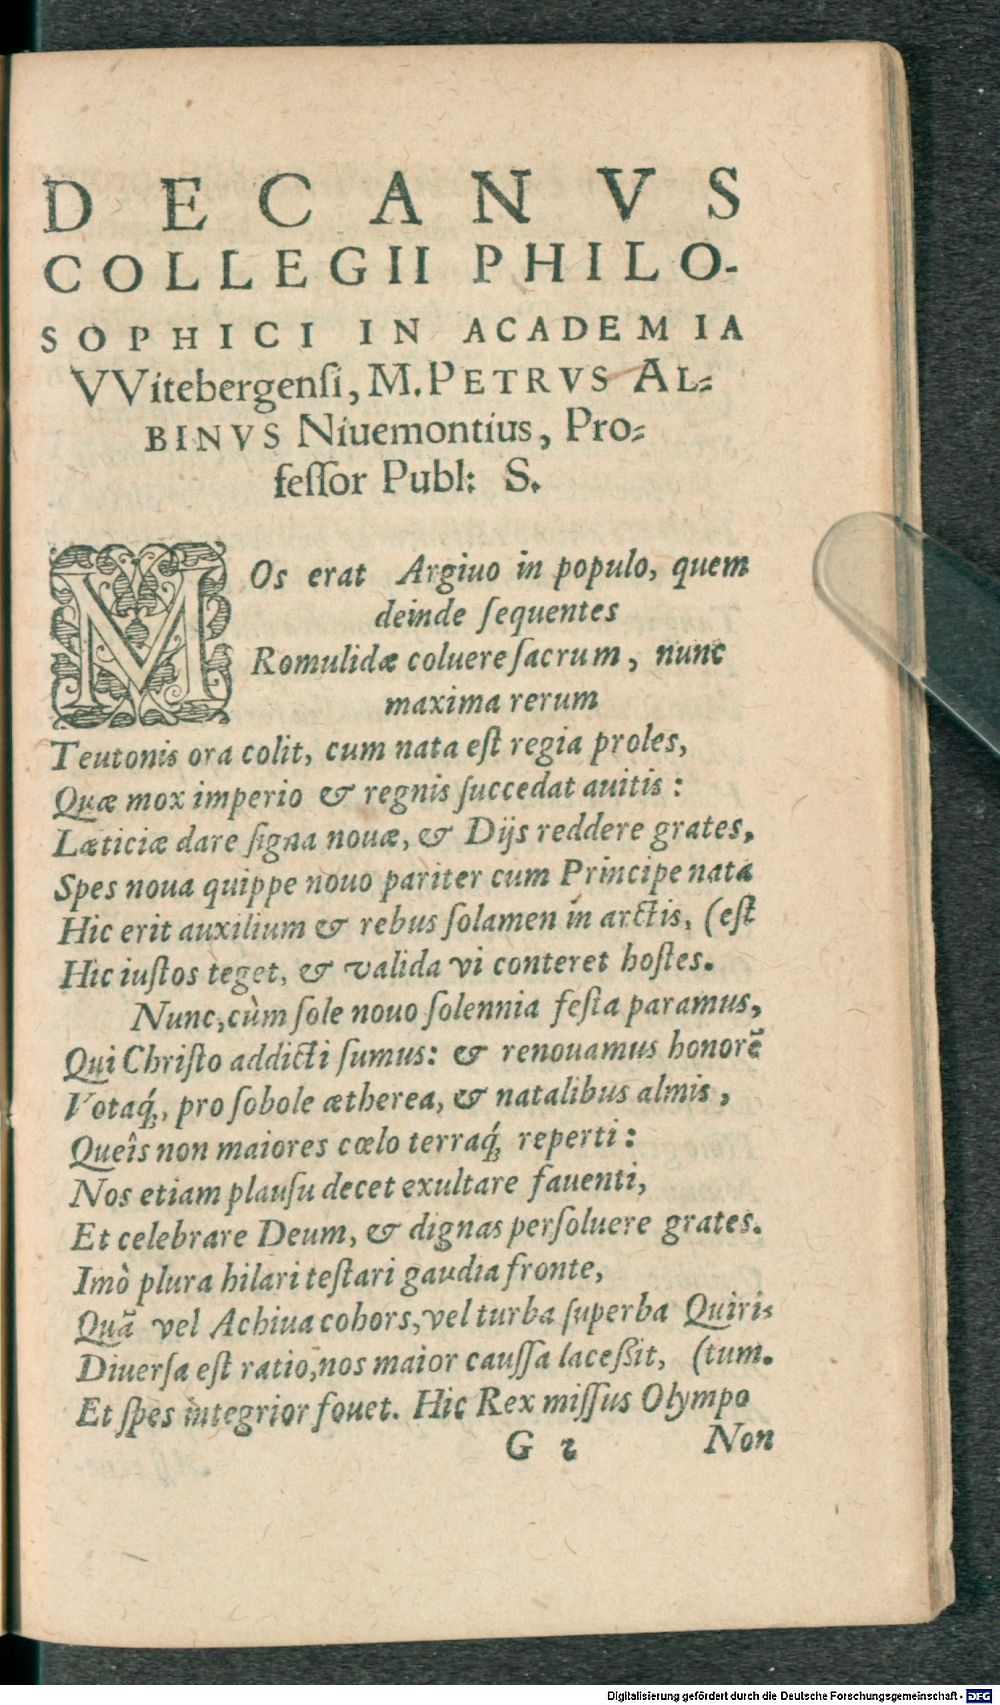 DECANVS
COLLEGII PHILO-
SOPHICI IN ACADEMIA
VVitebergensi, M. PETRVS AL-
BINVS Niuemontius, Pro-
feſſor Publ: S.
MOs erat Argiuo in populo, quem
deinde ſequentes
Romulidæ coluere ſacrum, nunc
maxima rerum
Teutonis ora colit, cum nata eſt regia proles,
Quæ mox imperio & regnis ſuccedat auitis:
Læticiæ dare ſigna nouæ, & Dijs reddere grates,
Spes noua quippe nouo pariter cum Principe nata
Hic erit auxilium & rebus ſolamen in arctis, (eſt
Hic iuſtos teget, & valida vi conteret hoſtes.
Nunc, cùm ſole nouo ſolennia feſta paramus,
Qui Chriſto addicti ſumus: & renouamus honorẽ
Votaq́;, pro ſobole ætherea, & natalibus almis,
Queîs non maiores cœlo terraq́; reperti:
Nos etiam plauſu decet exultare fauenti,
Et celebrare Deum, & dignas perſoluere grates.
Imò plura hilari teſtari gaudia fronte,
Quã vel Achiua cohors, vel turba ſuperba Quiri-
Diuerſa eſt ratio, nos maior cauſſa laceßit, (tum.
Et ſpes integrior fouet. Hic Rex miſſus Olympo
G 2 Non
Digitalisierung gefördert durch die Deutsche Forschungsgemeinschaft - DFG